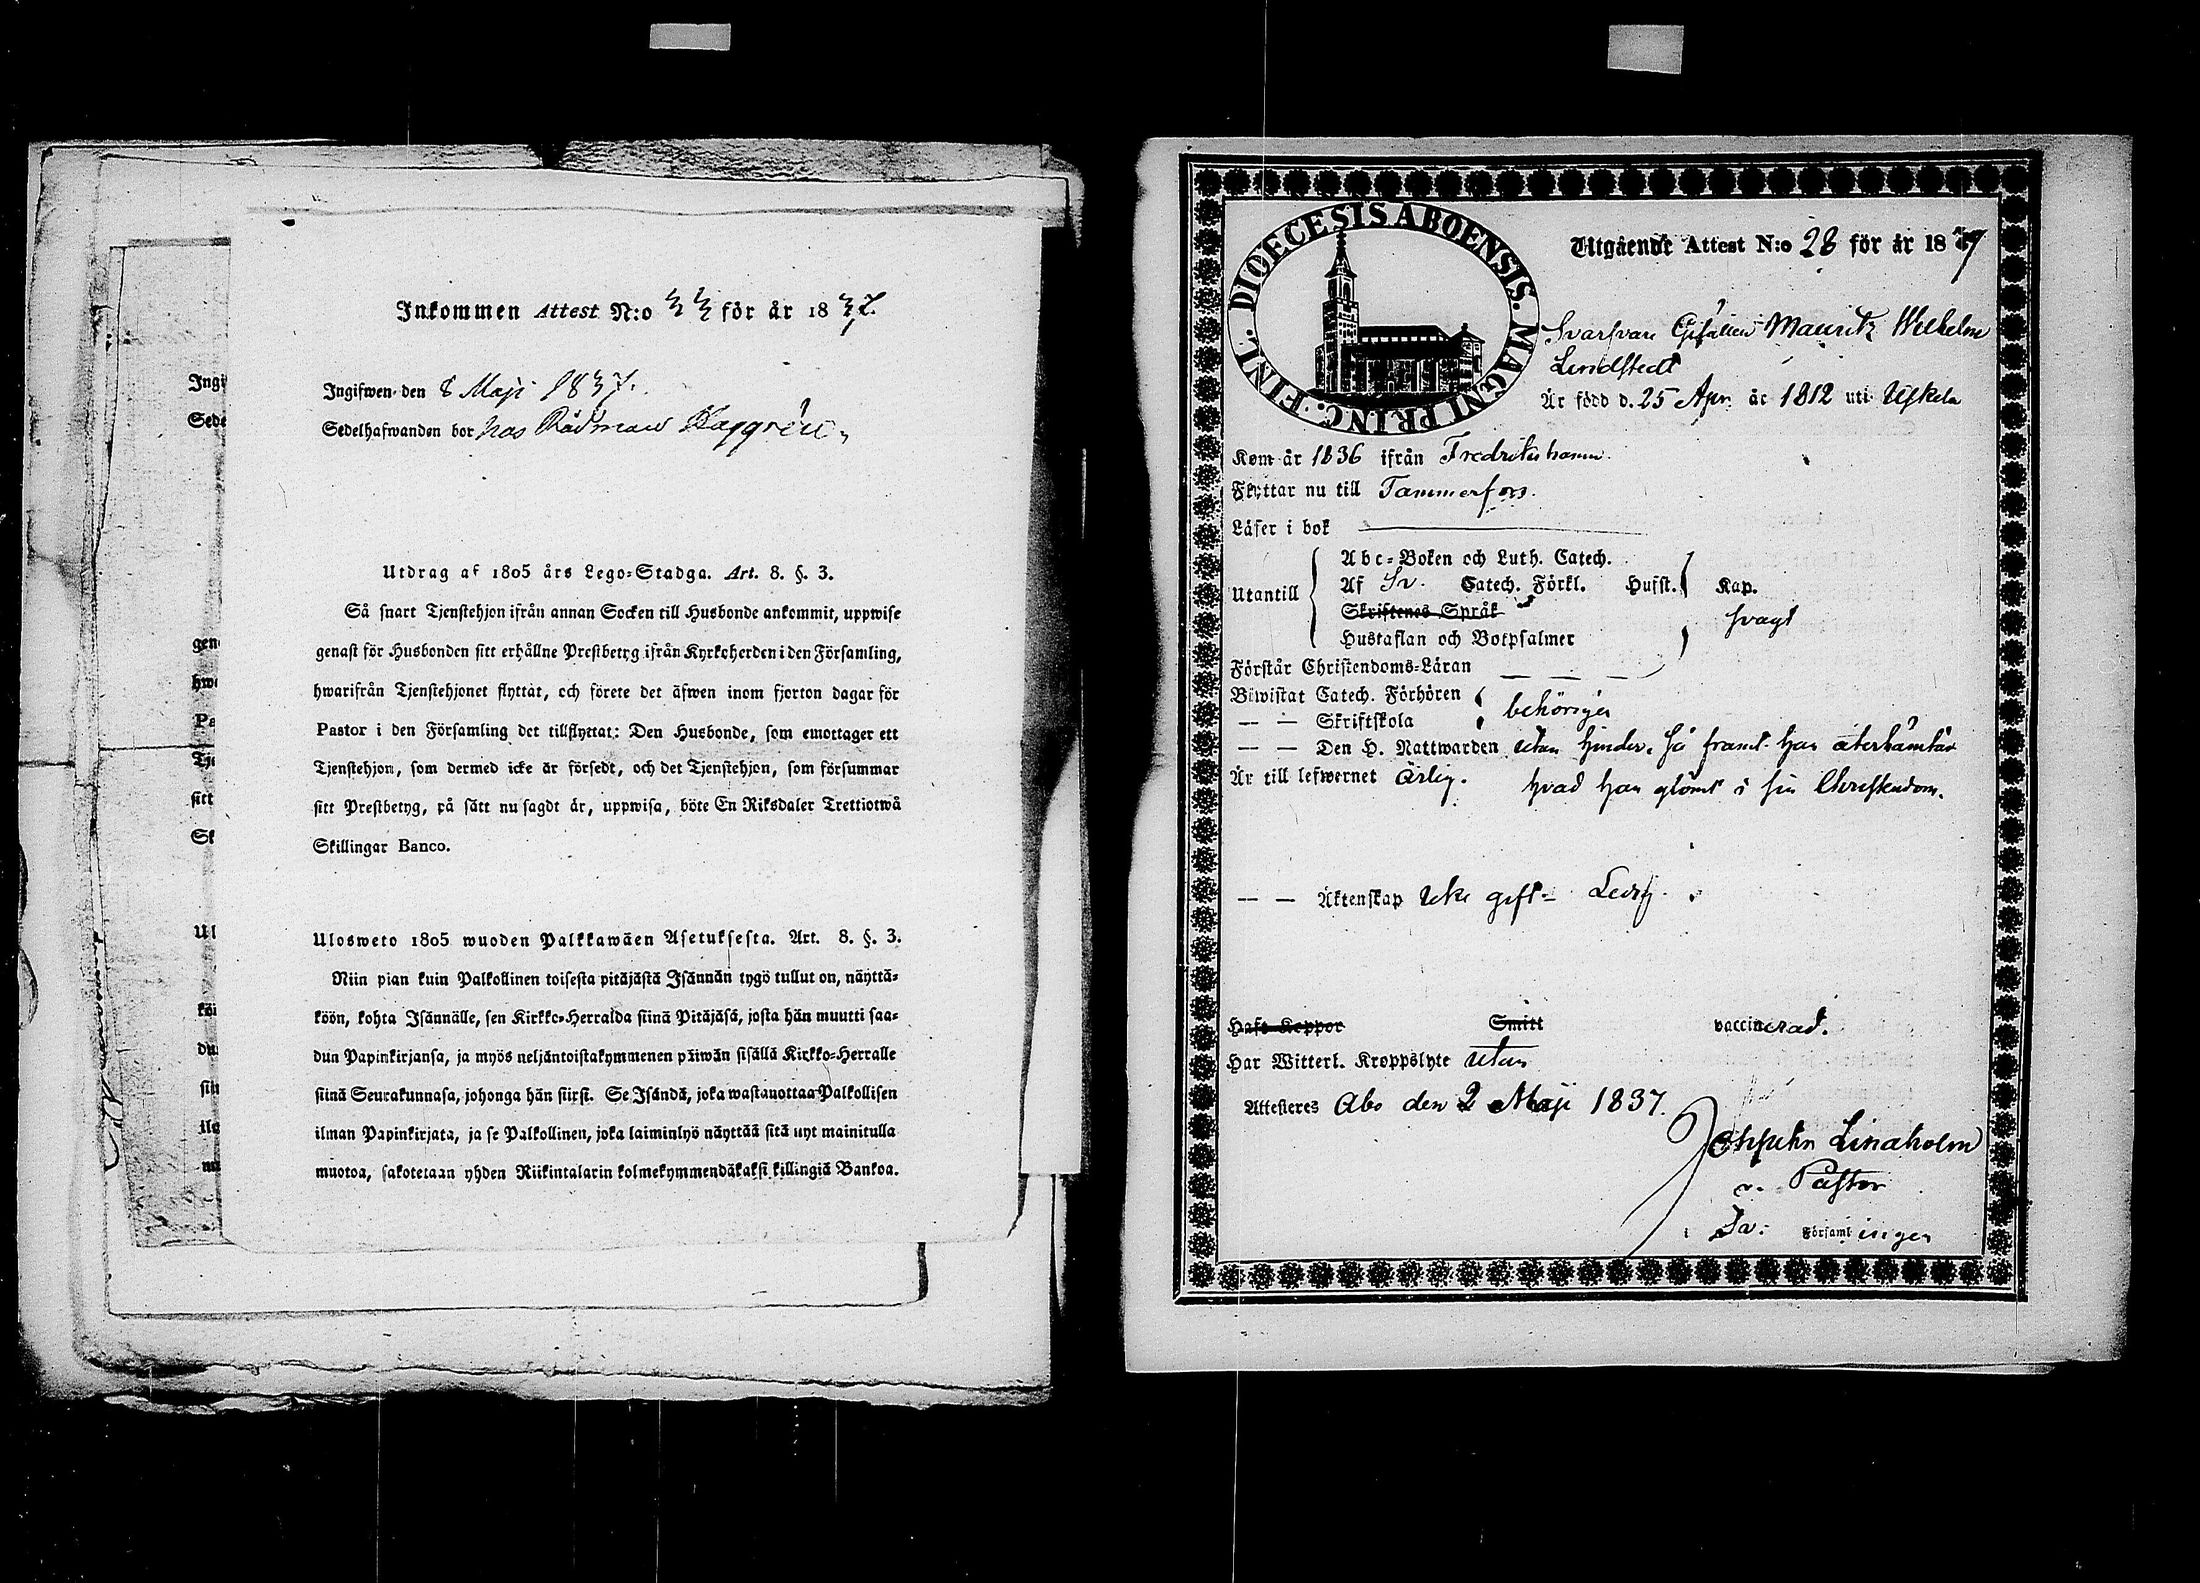 Inkommen Attest N:o 33 för år 1837.
Ingifwen den 8 Maji 1837.
Sedelhafwanden bor hos Rådman
Utdrag af 1805 års Lego-Stadga. Art. 8. §. 3.
Så snart Tjenstehjon ifrån annan Socken till Husbonde ankommit, uppwise
genast för Husbonden sitt erhållne Prestbetyg ifrån Kyrkoherden i den Församling,
hwarifrån Tjenstehjonet flyttat, och förete det äfwen inom fjorton dagar för
Pastor i den Församling det tillflyttat: Den Husbonde, som emottager ett
Tjenstehjon, som dermed icke är försedt, och det Tjenstehjon, som försummar
sitt Prestbetyg, på sätt nu sagdt är, uppwisa, böte En Riksdaler Trettiotwå
Skillingar Banco.
Ulosweto 1805 wuoden Palkkawäen Asetuksesta. Art. 8. §. 3.
Niin pian kuin Palkollinen toisesta pitäjästä Isännän tygö tullut on, näyttä-
köön, kohta Isännälle, sen Kirkko-Herralda siinä Pitäjäsä, josta hän muutti saa-
dun Papinkirjansa, ja myös neljäntoistakymmenen päiwän sisällä Kirkko-Herralle
siinä Seurakunnasa, johonga hän siirsi. Se Isändä, joka wastanottaa Palkollisen
ilman Papinkirjata, ja se Palkollinen, joka laiminlyö näyttää sitä nyt mainitulla
muotoa, sakotetaan yhden Riikintalarin kolmekymmendäkaksi killingiä Bankoa.
Ingi
Sede
gen
hwa
Pa
Tje
sitt
Sk
Ul
köö
du
sii
ilo
mu
DIOECESIS ABOENSIS. MAGNI PRINC. FINL.
Utgående Attest N:o 28 för år 1837
Svarfvare Gesällen Mauritz Wilhelm
Lindstedt
Är född d. 25 Apr. år 1812 uti Uskela
Kom år 1836 ifrån Fredrikshamn.
Flyttar nu till Tammerfors.
Läser i bok
Utantill
Abc-Boken och Luth. Catech.
Af Sv. Catech. Förkl. Husst. Kap.
Skriftenes Språk
svagt
Hustaflan och Botpsalmer
Förstår Christendoms-Läran
Biwistat Catech. Förhören
behörigen
— — Skriftskola
— — Den H. Nattwarden utan hinder. så framt han återhämtar
Är till lefwernet ärlig. hvad han glömt i sin Christendom.
— — Äktenskap icke gift - Ledig.
Haft Koppor Smitt vaccinerad.
Har Witterl. Kroppslyte utan
Attesteres Åbo den 2 Maji 1837.
Josephn Lindholm
v. Pastor
i Sv. Församlingen